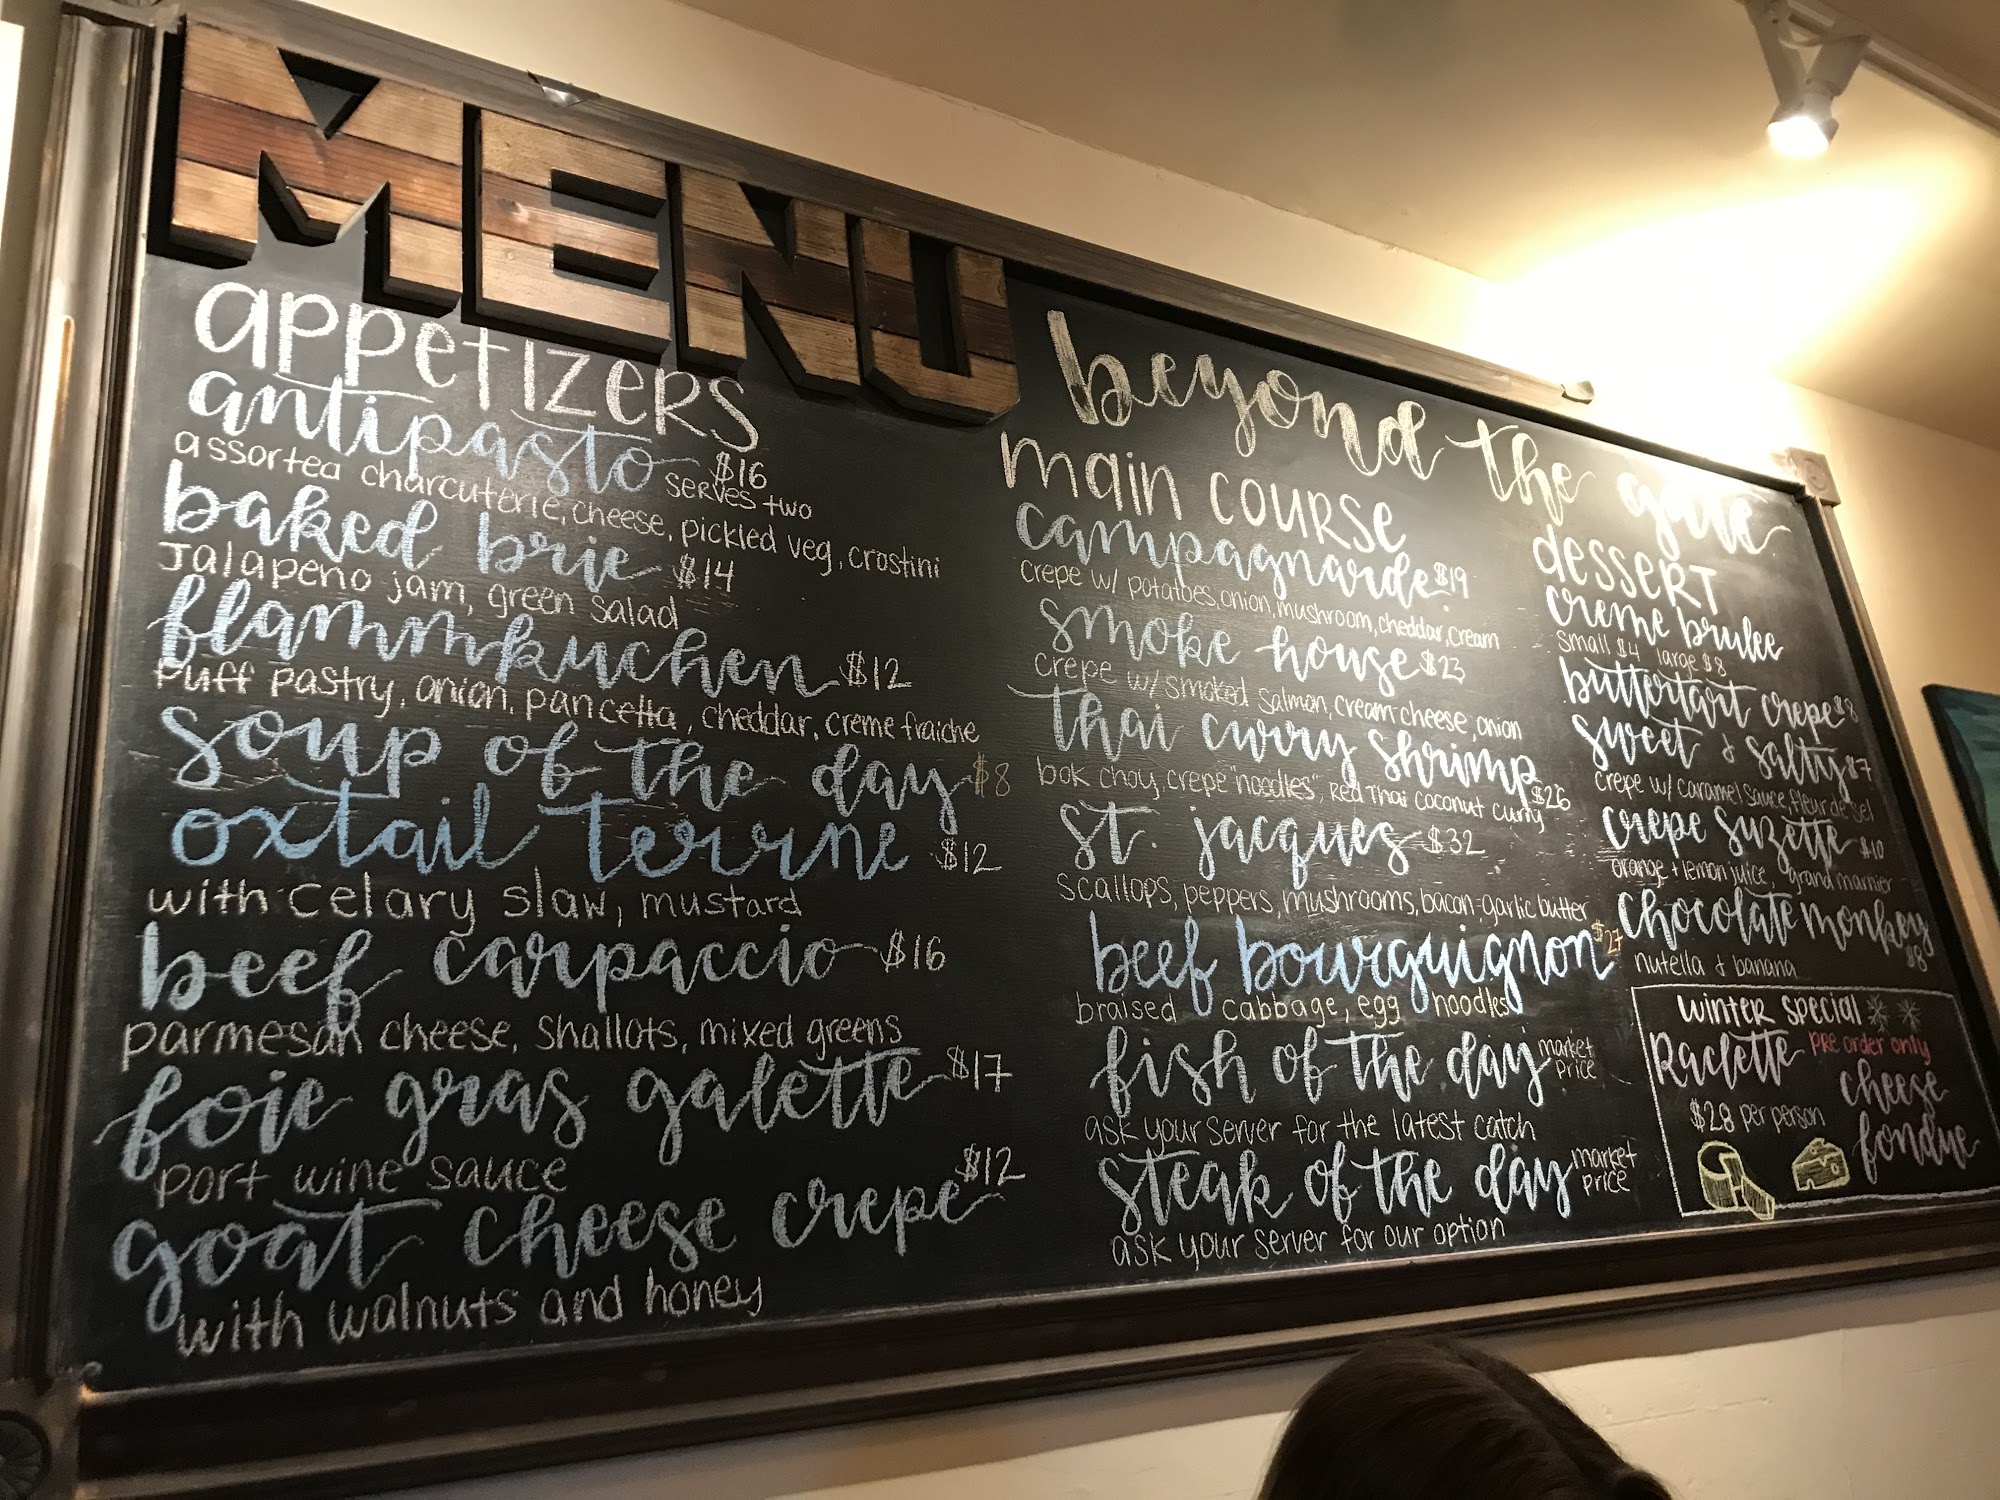 MENU
appetizers
antipasto $16
serves two
assorted charcuterie, cheese, pickled veg, crostini
baked brie $14
Jalapeno jam, green salad
flammkuchen $12
Puff pastry, onion, pancetta, cheddar, creme fraiche
soup of the day $8
oxtail terrne $12
with celary slaw, mustard
beef carpaccio $16
parmesan cheese, shallots, mixed greens
foie gras galette $17
port wine sauce
goat cheese crepe $12
with walnuts and honey
beyond the gate
main course
campagnarde $19
crepe w/ potatoes, onion, mushroom, cheddar, cream
smoke house $23
crepe w/ smoked salmon, cream cheese, onion
thai curry shrimp $26
bok choy, crepe "noodles", Red Thai coconut curry
st. jacques $32
scallops, peppers, mushrooms, bacon-garlic butter
beef bourguignon $27
braised cabbage, egg noodles
fish of the day market price
ask your server for the latest catch
steak of the day market price
ask your server for our option
dessert
creme brulee
small $4 large $8
buttertart crepe $8
sweet & salty $7
crepe w/ caramel sauce, fleur de sel
crepe suzette $10
orange + lemon juice, grand marnier
chocolate monkey $8
nutella & banana
winter special
Raclette pre order only
$28 per person
cheese fondue